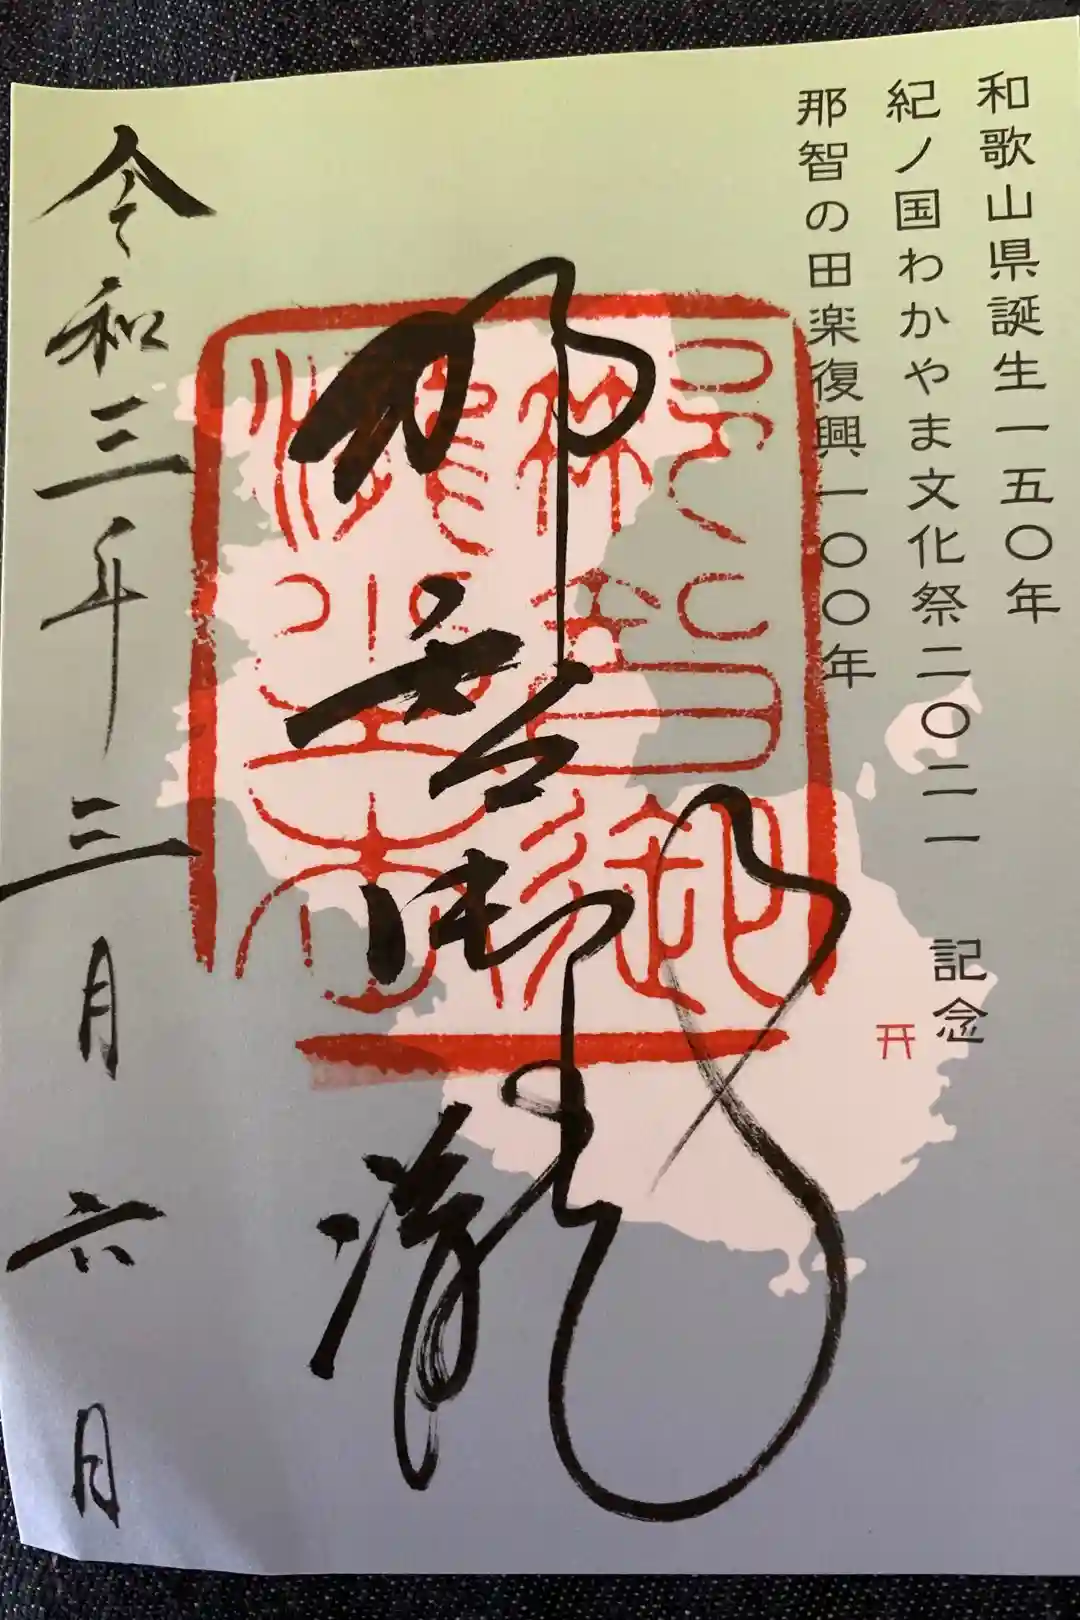 和歌山県誕生一五〇年
紀ノ国わかやま文化祭二〇二一 記念
那智の田楽復興一〇〇年
那智御瀧
令和三年三月六日